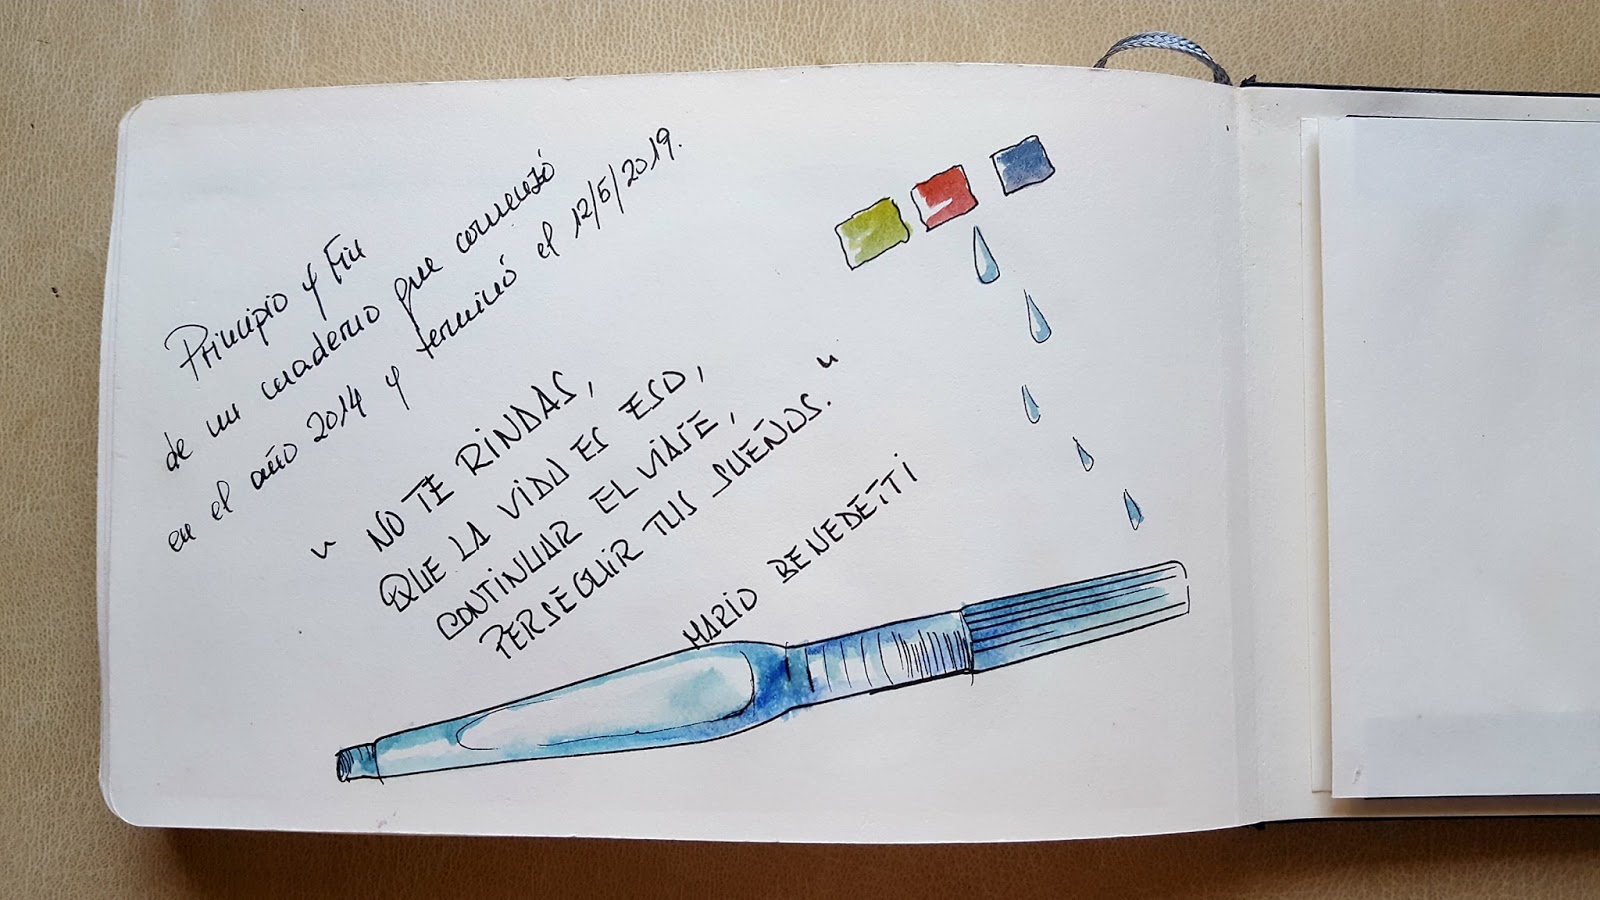 Principio y Fin
de un cuaderno que comenzó
en el año 2014 y terminó el 12/5/2019.
" NO TE RINDAS,
QUE LA VIDA ES ESO,
CONTINUAR EL VIAJE,
PERSEGUIR TUS SUEÑOS. "
MARIO BENEDETTI